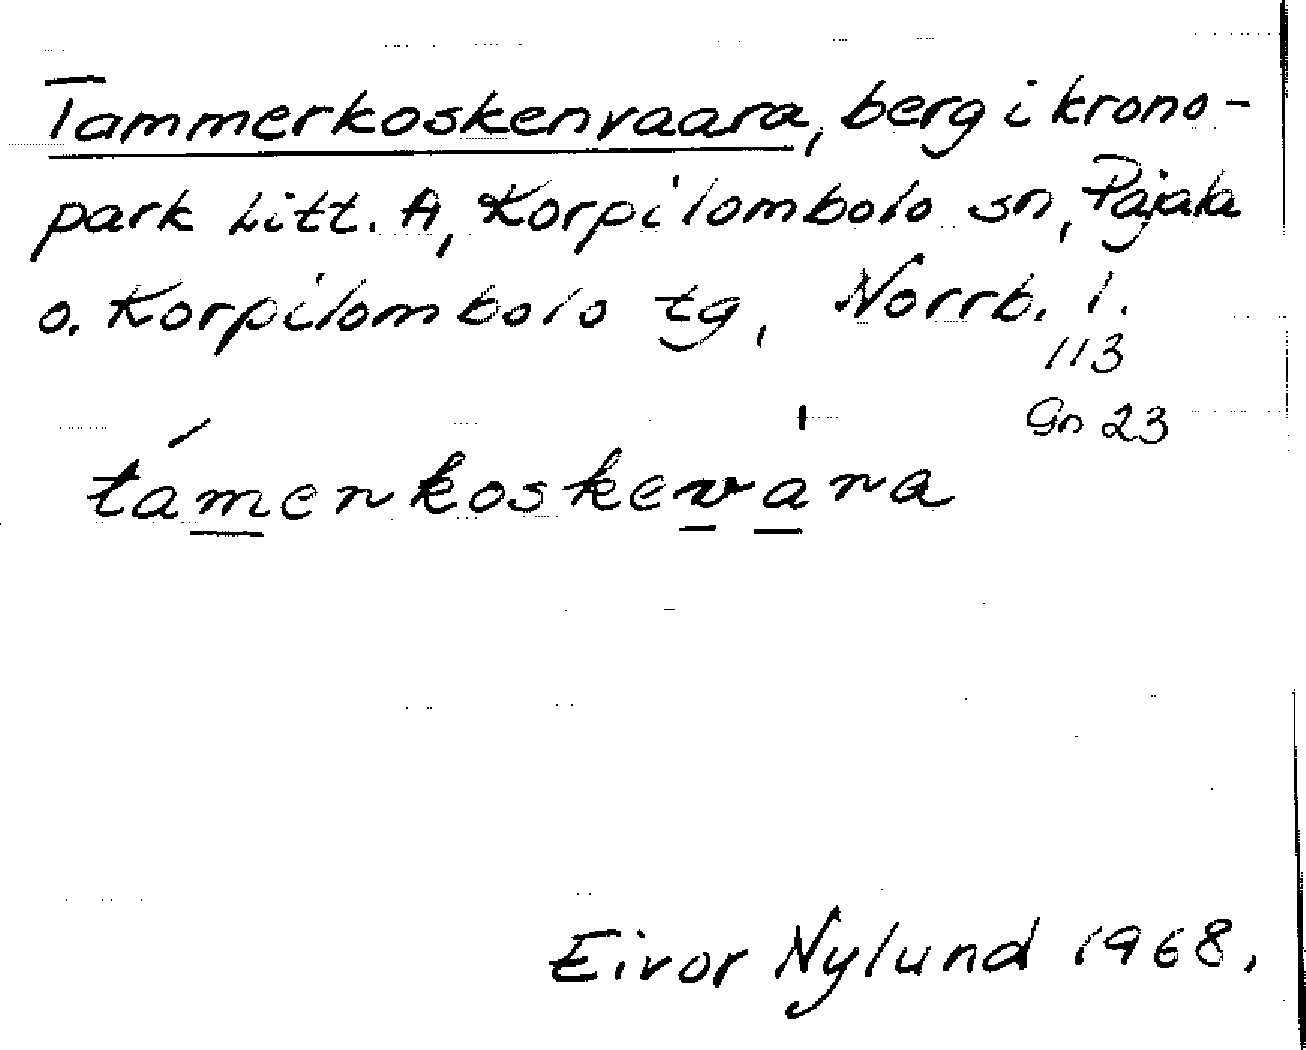 Tammerkoskenvaara, berg i krono-
park Litt. A, Korpilombolo sn, Pajala
o. Korpilombolo tg, Norrb. l.
113
Gn 23
támerkoskevara
Eivor Nylund 1968.